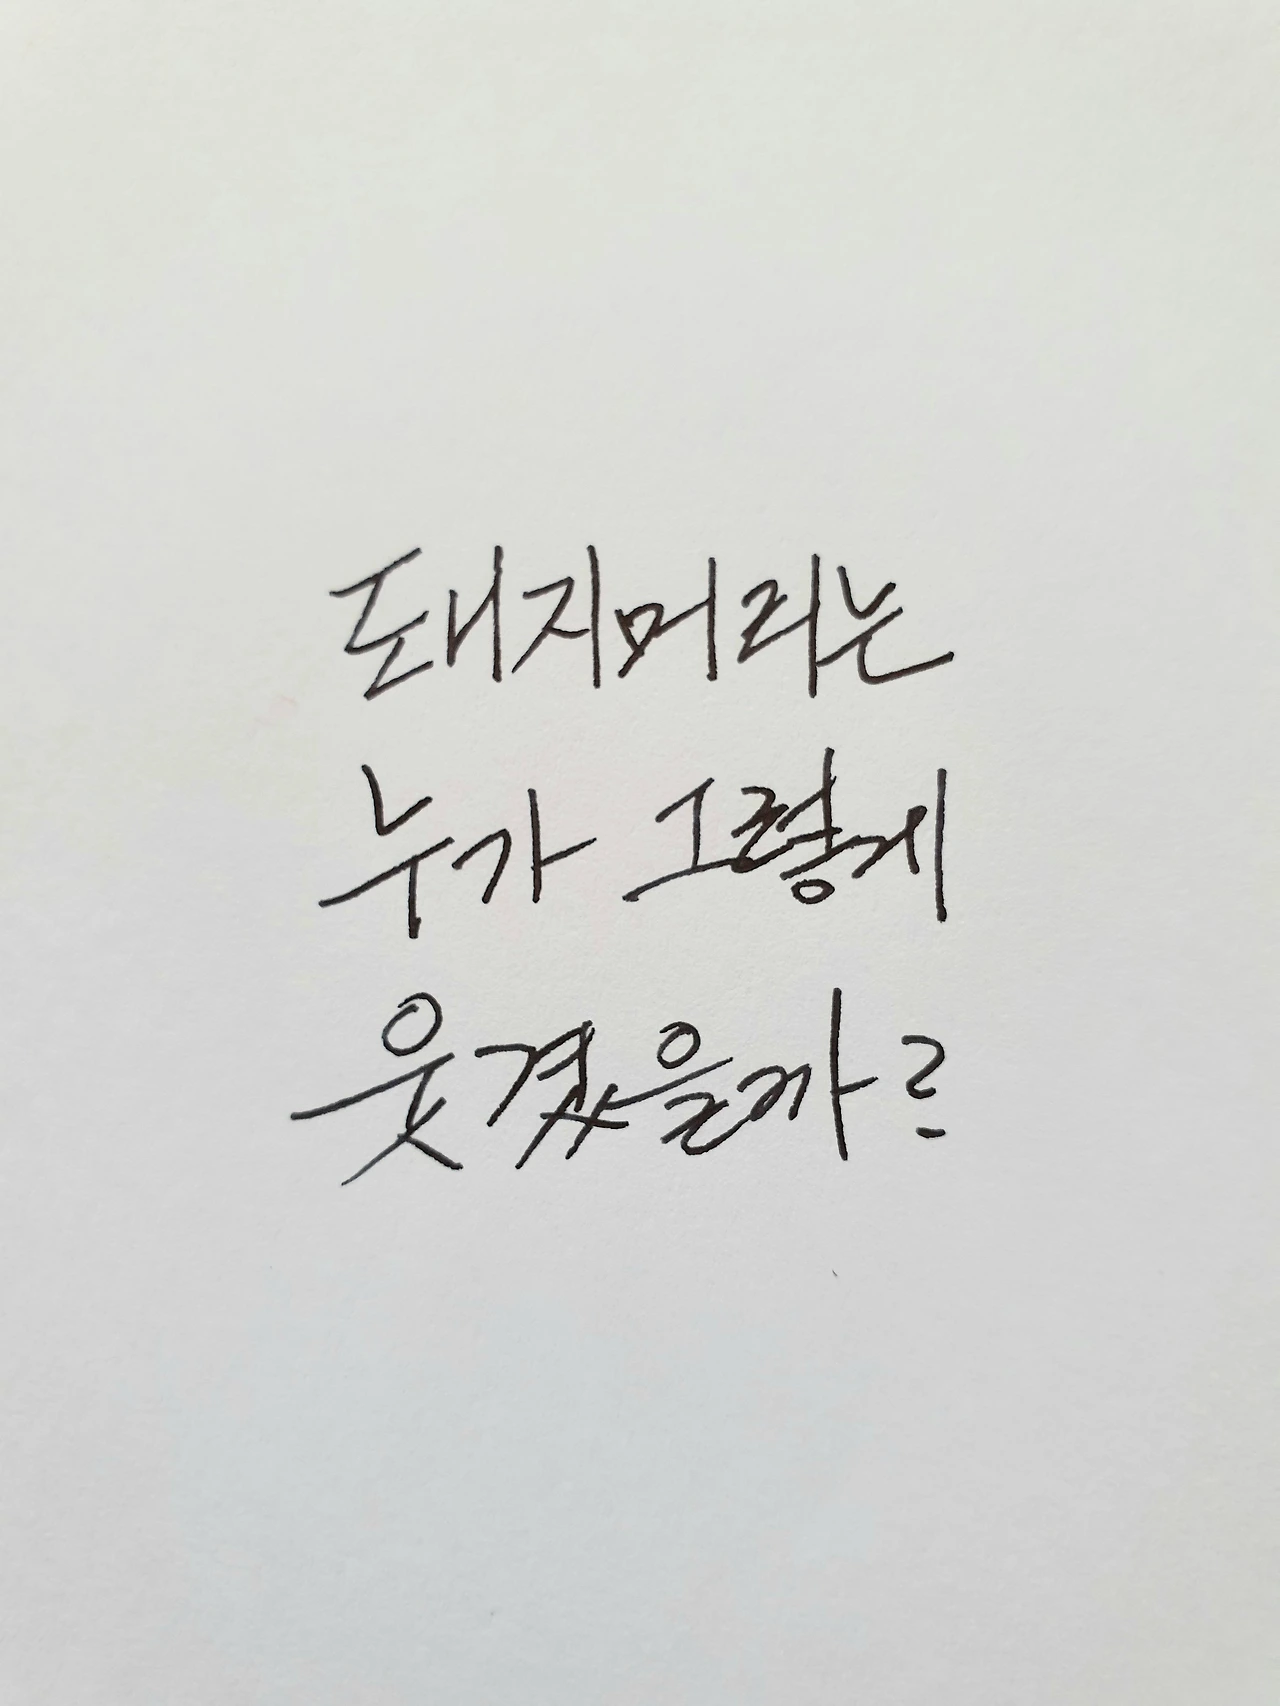 돼지머리는
누가 그렇게
웃겼을까?